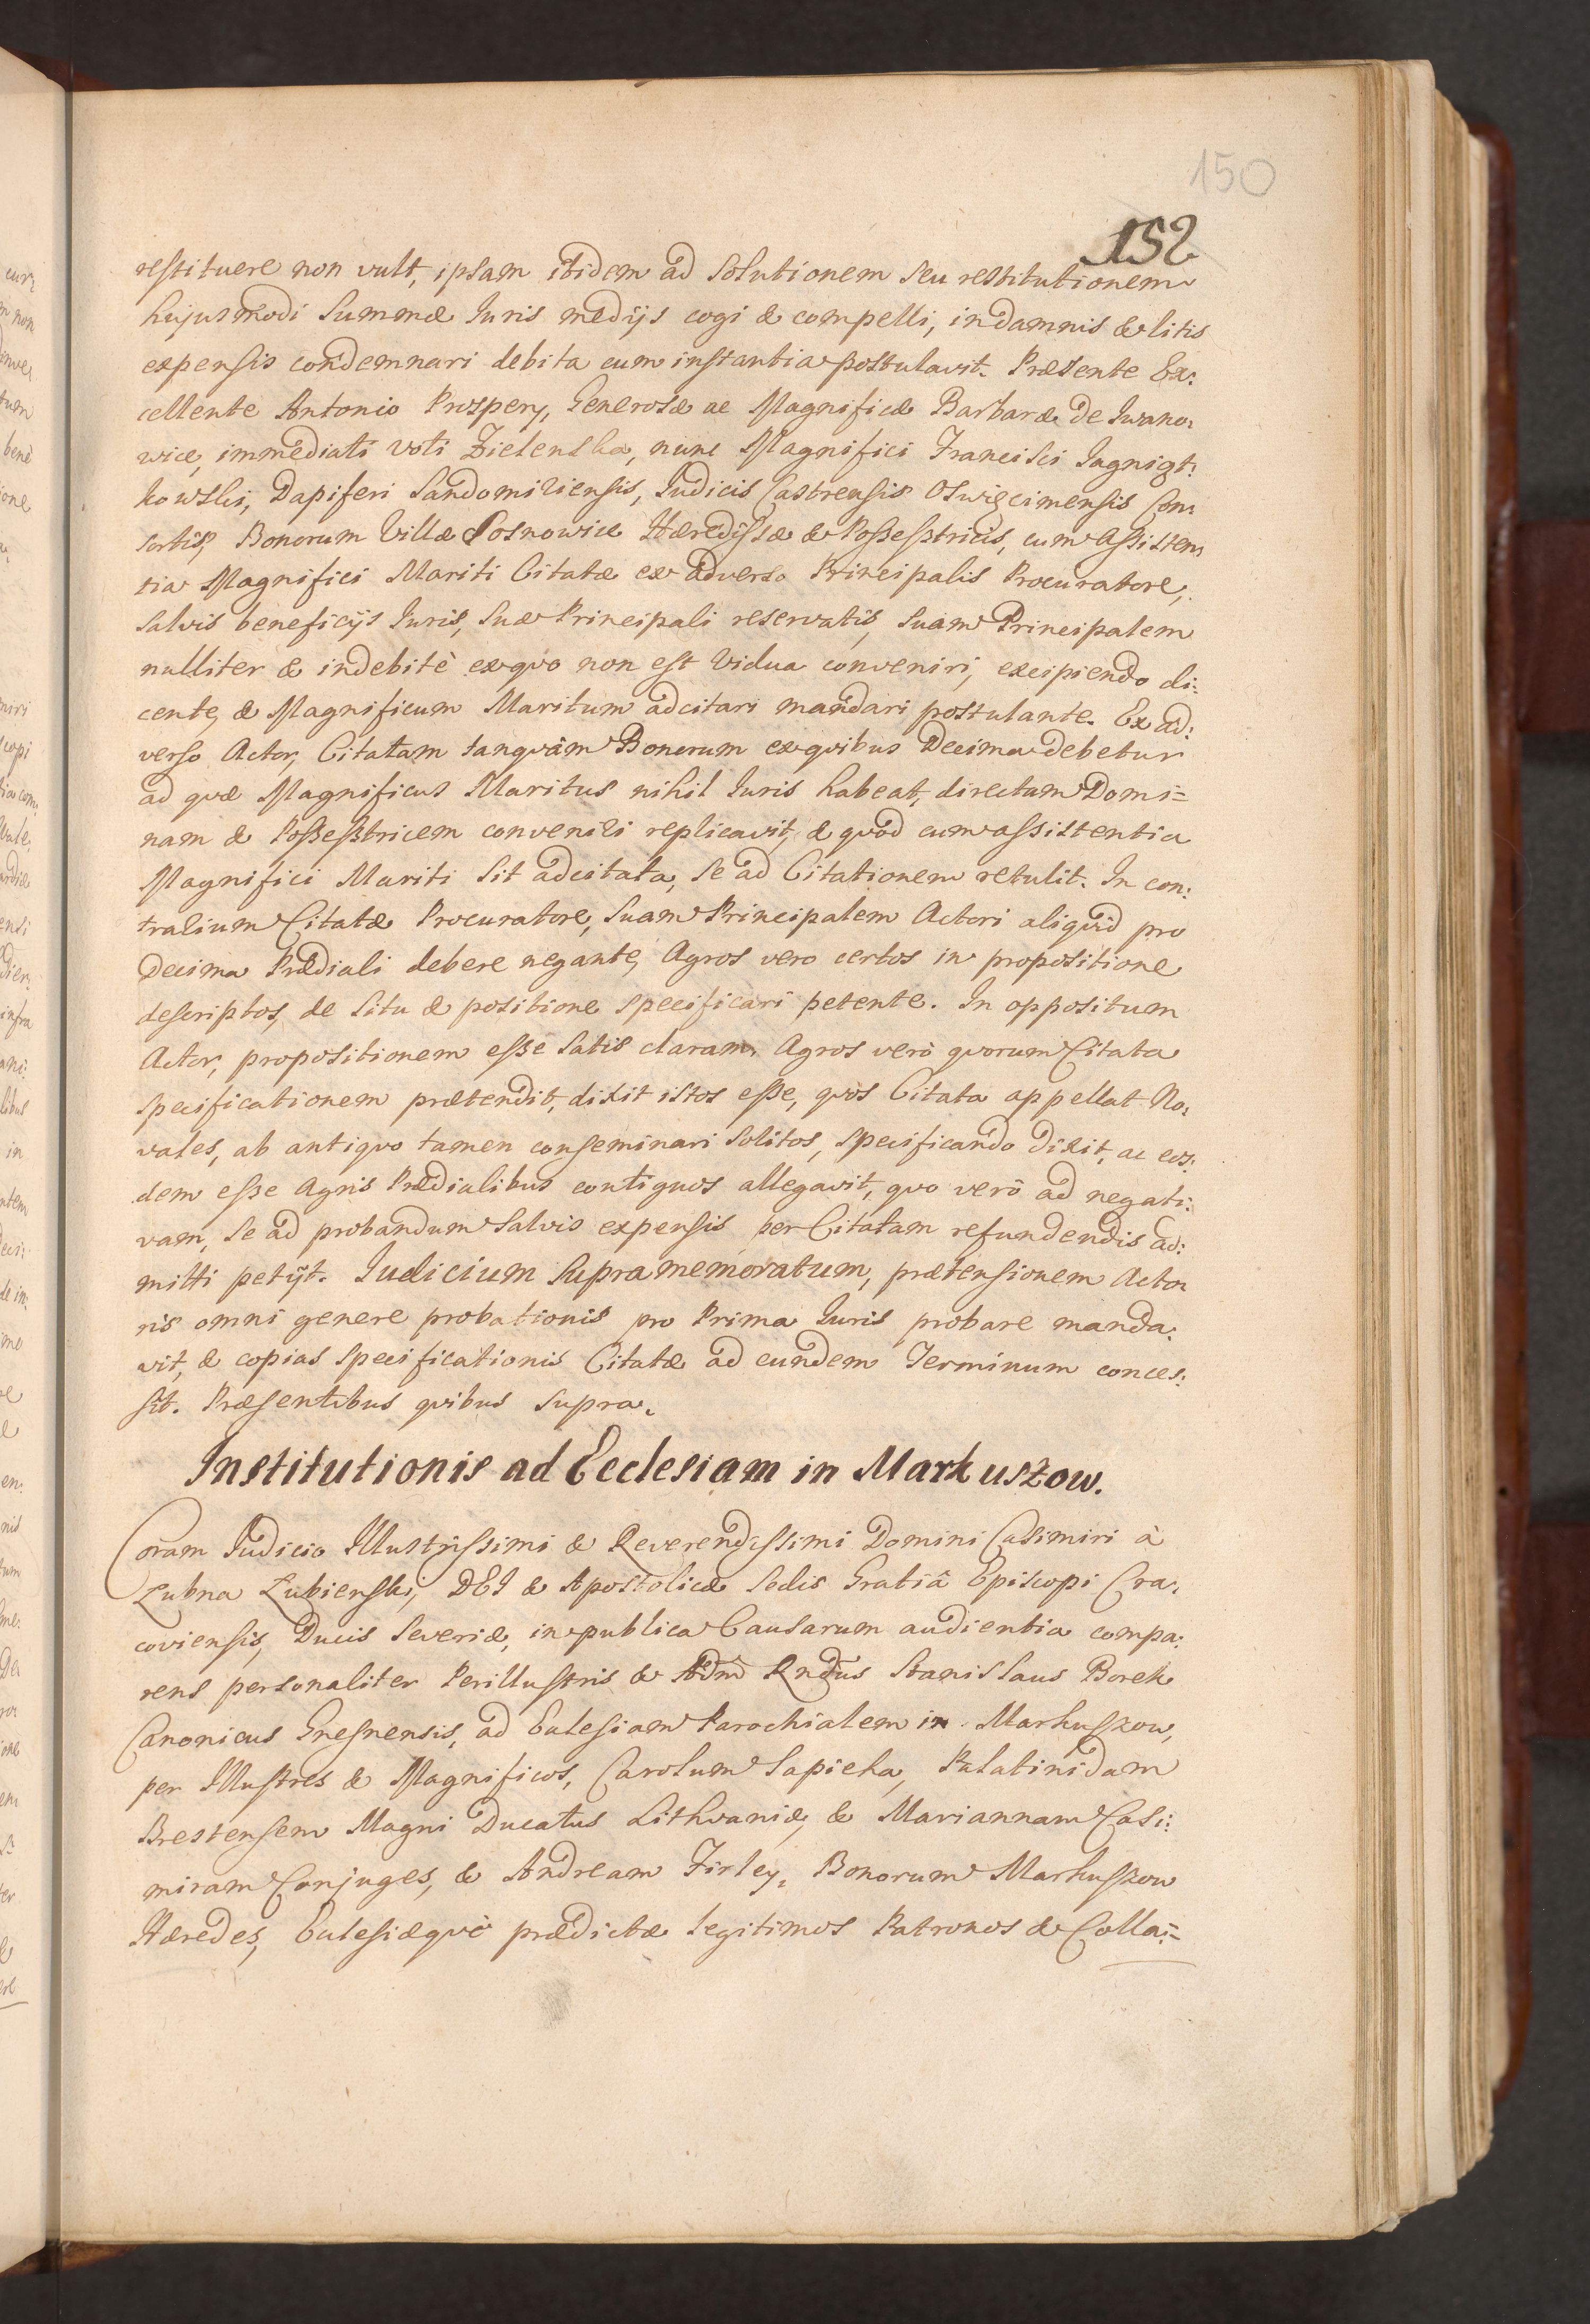 150
152
restituere non vult, ipsam ibidem ad solutionem seu restitutionem
hujusmodi summæ Iuris medijs cogi & compelli, in damnis & litis
expensis condemnari debita cum instantia postulavit. Præsente Ex:
cellente Antonio Prospery, Generosæ ac Magnificæ Barbaræ de Iwano:
wice, immediati voti Zielenska, nunc Magnifici Francisci
kowski, Dapiferi Sandomiriensis, Iudicis Castrensis Oswięcimensis Con:
sortis, Bonorum Villæ Posnowice Hæredissæ & Possesstricis, cum Assisten
tia Magnifici Mariti Citatæ ex adverso Principalis Procuratore,
salvis beneficijs Iuris, suæ Principali reservatis, suam Principalem
nulliter & indebitè ex quo non est Vidua conveniri, excipiendo di:
cente, & Magnificum Maritum adcitari mandari postulante. Ex ad:
verso Actor, Citatam tanquàm Bonorum ex quibus Decima debetur
ad quæ Magnificus Maritus nihil Iuris habeat, directam Domi=
nam & Possesstricem conveniri replicavit, & quòd cum assistentia
Magnifici Mariti sit adcitata, se ad Citationem retulit. In con:
trarium Citatæ Procuratore, suam Principalem Actori aliquid pro
Decima Prædiali debere negante, Agros vero certos in propositione
descriptos, de situ & positione specificari petente. In oppositum
Actor, propositionem esse satis claram, Agros verò quorum Citata
specificationem prætendit, dixit istos esse, quos Citata appellat No:
vales, ab antiquo tamen conseminari solitos, specificando dixit, ac eos:
dem esse Agris Prædialibus contiguos allegavit, quo verò ad negati:
vam, se ad probandum salvis expensis per Citatam refundendis ad:
mitti petijt. Iudicium supra memoratum, prætensionem Acto
ris omni genere probationis pro Prima Iuris probare manda:
vit, & copias specificationis Citatæ ad eundem Terminum conces:
sit. Præsentibus quibus supra.
Institutionis ad Ecclesiam in Markuszow.
Coram Iudicio Illustrissimi & Reverendissimi Domini Casimiri à
Lubna Lubienski, DEI & Apostolicæ Sedis Gratiâ Episcopi Cra:
coviensis, Ducis Severiæ, in publica Causarum audientia compa:
rens personaliter Perillustris & Adm Rndus Stanislaus Borek
Canonicus Gnesnensis, ad Eclesiam Parochialem in Markuszow,
per Illustres & Magnificos, Carolum Sapieha, Palatinidam
Brestensem Magni Ducatus Lithvaniæ, & Mariannam Casi:
miram Conjuges, & Andream Firley, Bonorum Markuszow
Hæredes, Eclesiæquè prædictæ legitimos Patronos & Colla:=